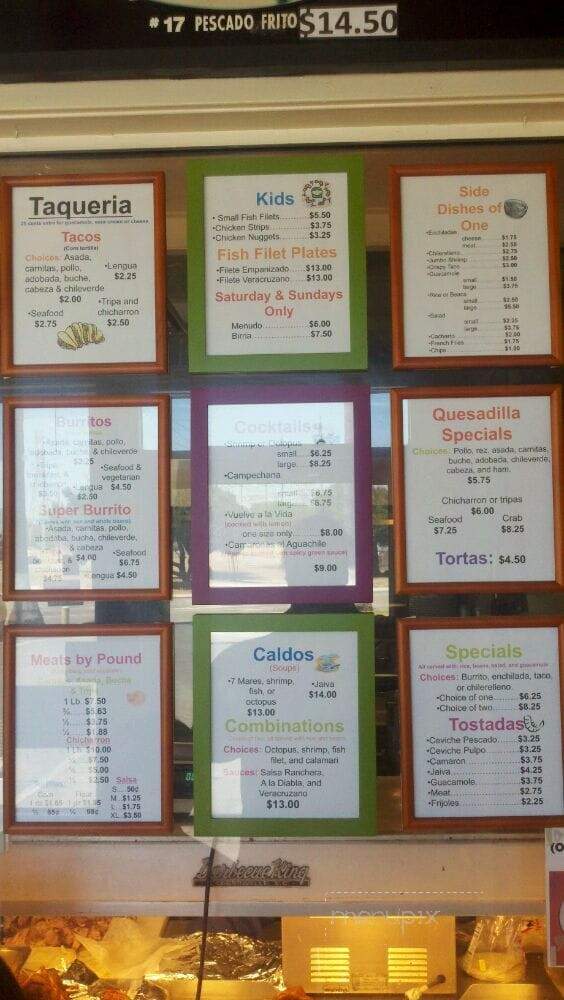 #17 PESCADO FRITO $14.50
Taqueria
25 cents extra for guacamole, sour cream or cheese
Tacos
(Corn tortilla)
Choices: Asada,
carnitas, pollo,
adobada, buche,
cabeza & chileverde
$2.00
•Lengua
$2.25
•Seafood
$2.75
•Tripa and
chicharron
$2.50
Kids
• Small Fish Filets $5.50
•Chicken Strips $3.75
•Chicken Nuggets $3.25
Fish Filet Plates
•Filete Empanizado $13.00
•Filete Veracruzano $13.00
Saturday & Sundays
Only
Menudo $6.00
Birria $7.50
Side
Dishes of
One
•Enchiladas
cheese $1.75
meat $2.50
•Chilerelleno $2.75
•Jumbo Shrimp $2.50
•Crispy Taco $3.00
•Guacamole
small $1.50
large $3.75
•Rice or Beans
small $2.50
large $5.50
•Salad
small $2.25
large $3.75
$2.00
•French Fries $1.75
•Chips $1.00
Burritos
•Asada, carnitas, pollo,
adobada, buche, & chileverde
$3.25
•Seafood &
vegetarian
$4.50
•Lengua
Super Burrito
•Asada, carnitas, pollo,
adobada, buche, chileverde,
& cabeza
$4.00
•Seafood
$6.75
•Lengua $4.50
$4.75
Cocktails
•Shrimp or Octopus
small $6.25
large $8.25
•Campechana
small $6.75
large $8.75
•Vuelve a la Vida
one size only $8.00
•Camarones al Aguachile
$9.00
Quesadilla
Specials
Choices: Pollo, rez, asada, carnitas,
buche, adobada, chileverde,
cabeza, and ham.
$5.75
Chicharron or tripas
$6.00
Seafood
$7.25
Crab
$8.25
Tortas: $4.50
Meats by Pound
Asada, Buche
& Tripa
1 Lb. $7.50
¾ $5.63
½ $3.75
¼ $1.88
Chicharron
1 Lb. $10.00
¾ $7.50
½ $5.00
¼ $2.50
Salsa
S 50¢
M .$1.25
L .$1.75
XL .$3.50
Corn
Flour
Caldos
(Soups)
•7 Mares, shrimp,
fish, or
octopus
$13.00
•Jaiva
$14.00
Combinations
Choices: Octopus, shrimp, fish
filet, and calamari
Sauces: Salsa Ranchera,
A la Diabla, and
Veracruzano
$13.00
Specials
All served with: rice, beans, salad, and guacamole
Choices: Burrito, enchilada, taco,
or chilerelleno.
•Choice of one $6.25
•Choice of two $8.25
Tostadas
•Ceviche Pescado $3.25
•Ceviche Pulpo $3.25
•Camaron $3.75
•Jaiva $4.25
•Guacamole $3.75
•Meat $2.75
•Frijoles $2.25
Barbecue King
menupix